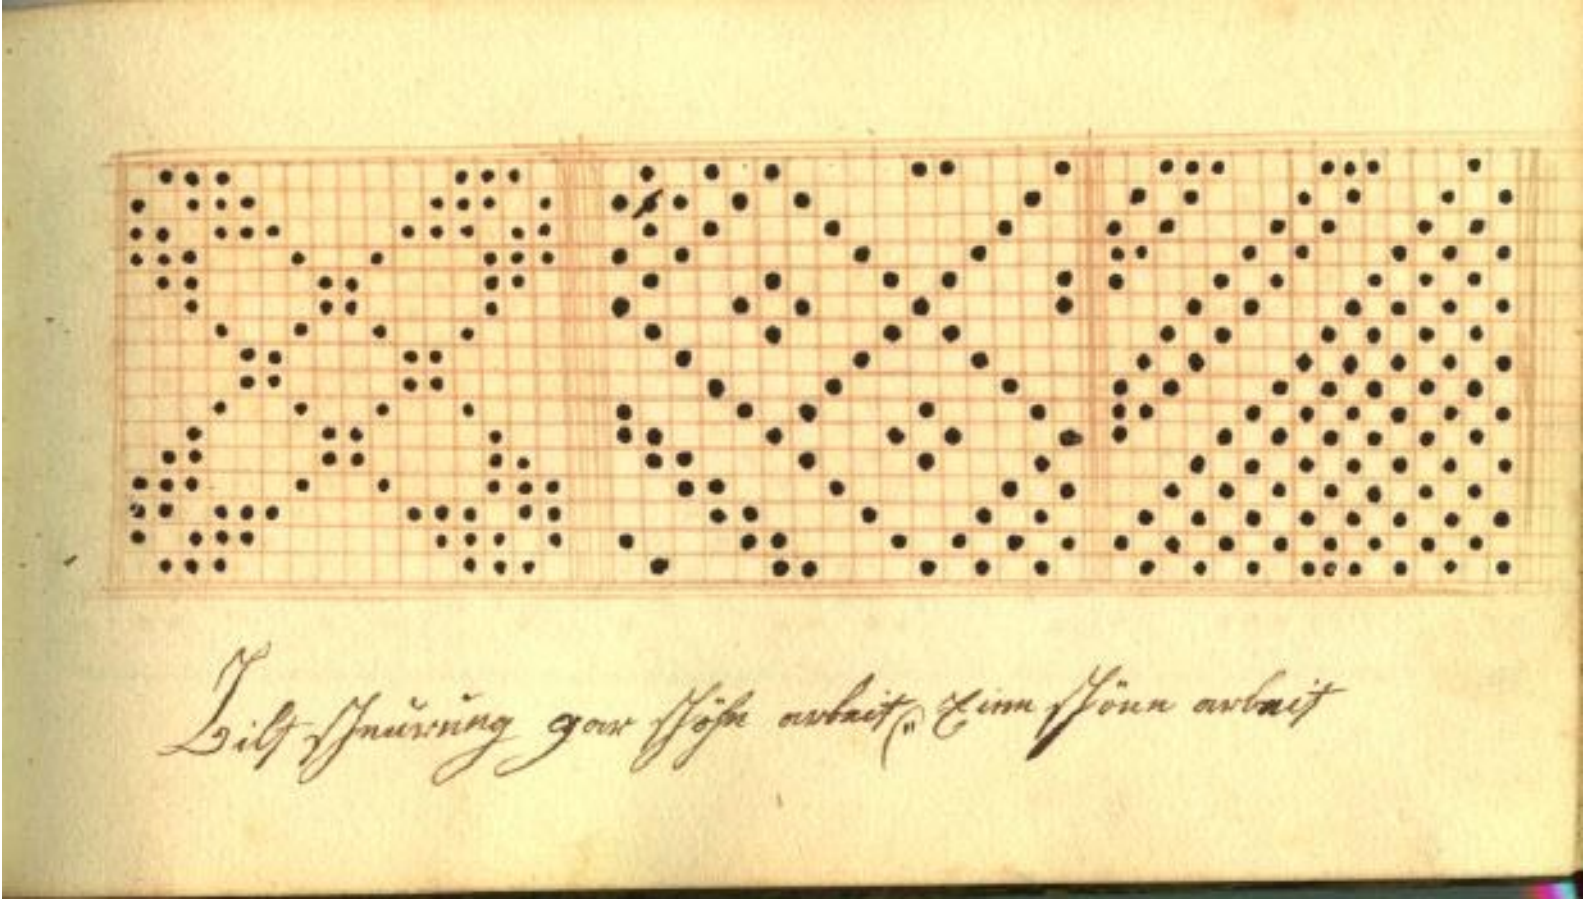 Bilt schnurung gar schöhn arbeit, Eine schöne arbeit